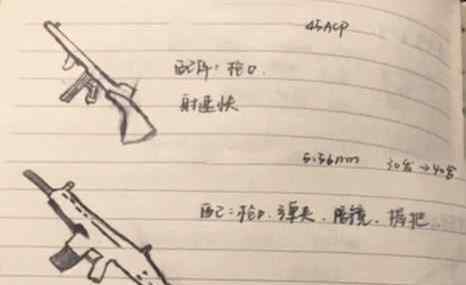 45ACP
配件：枪口.
射速快
5.56mm 30发→40发
配：枪口.弹夹.倍镜.握把